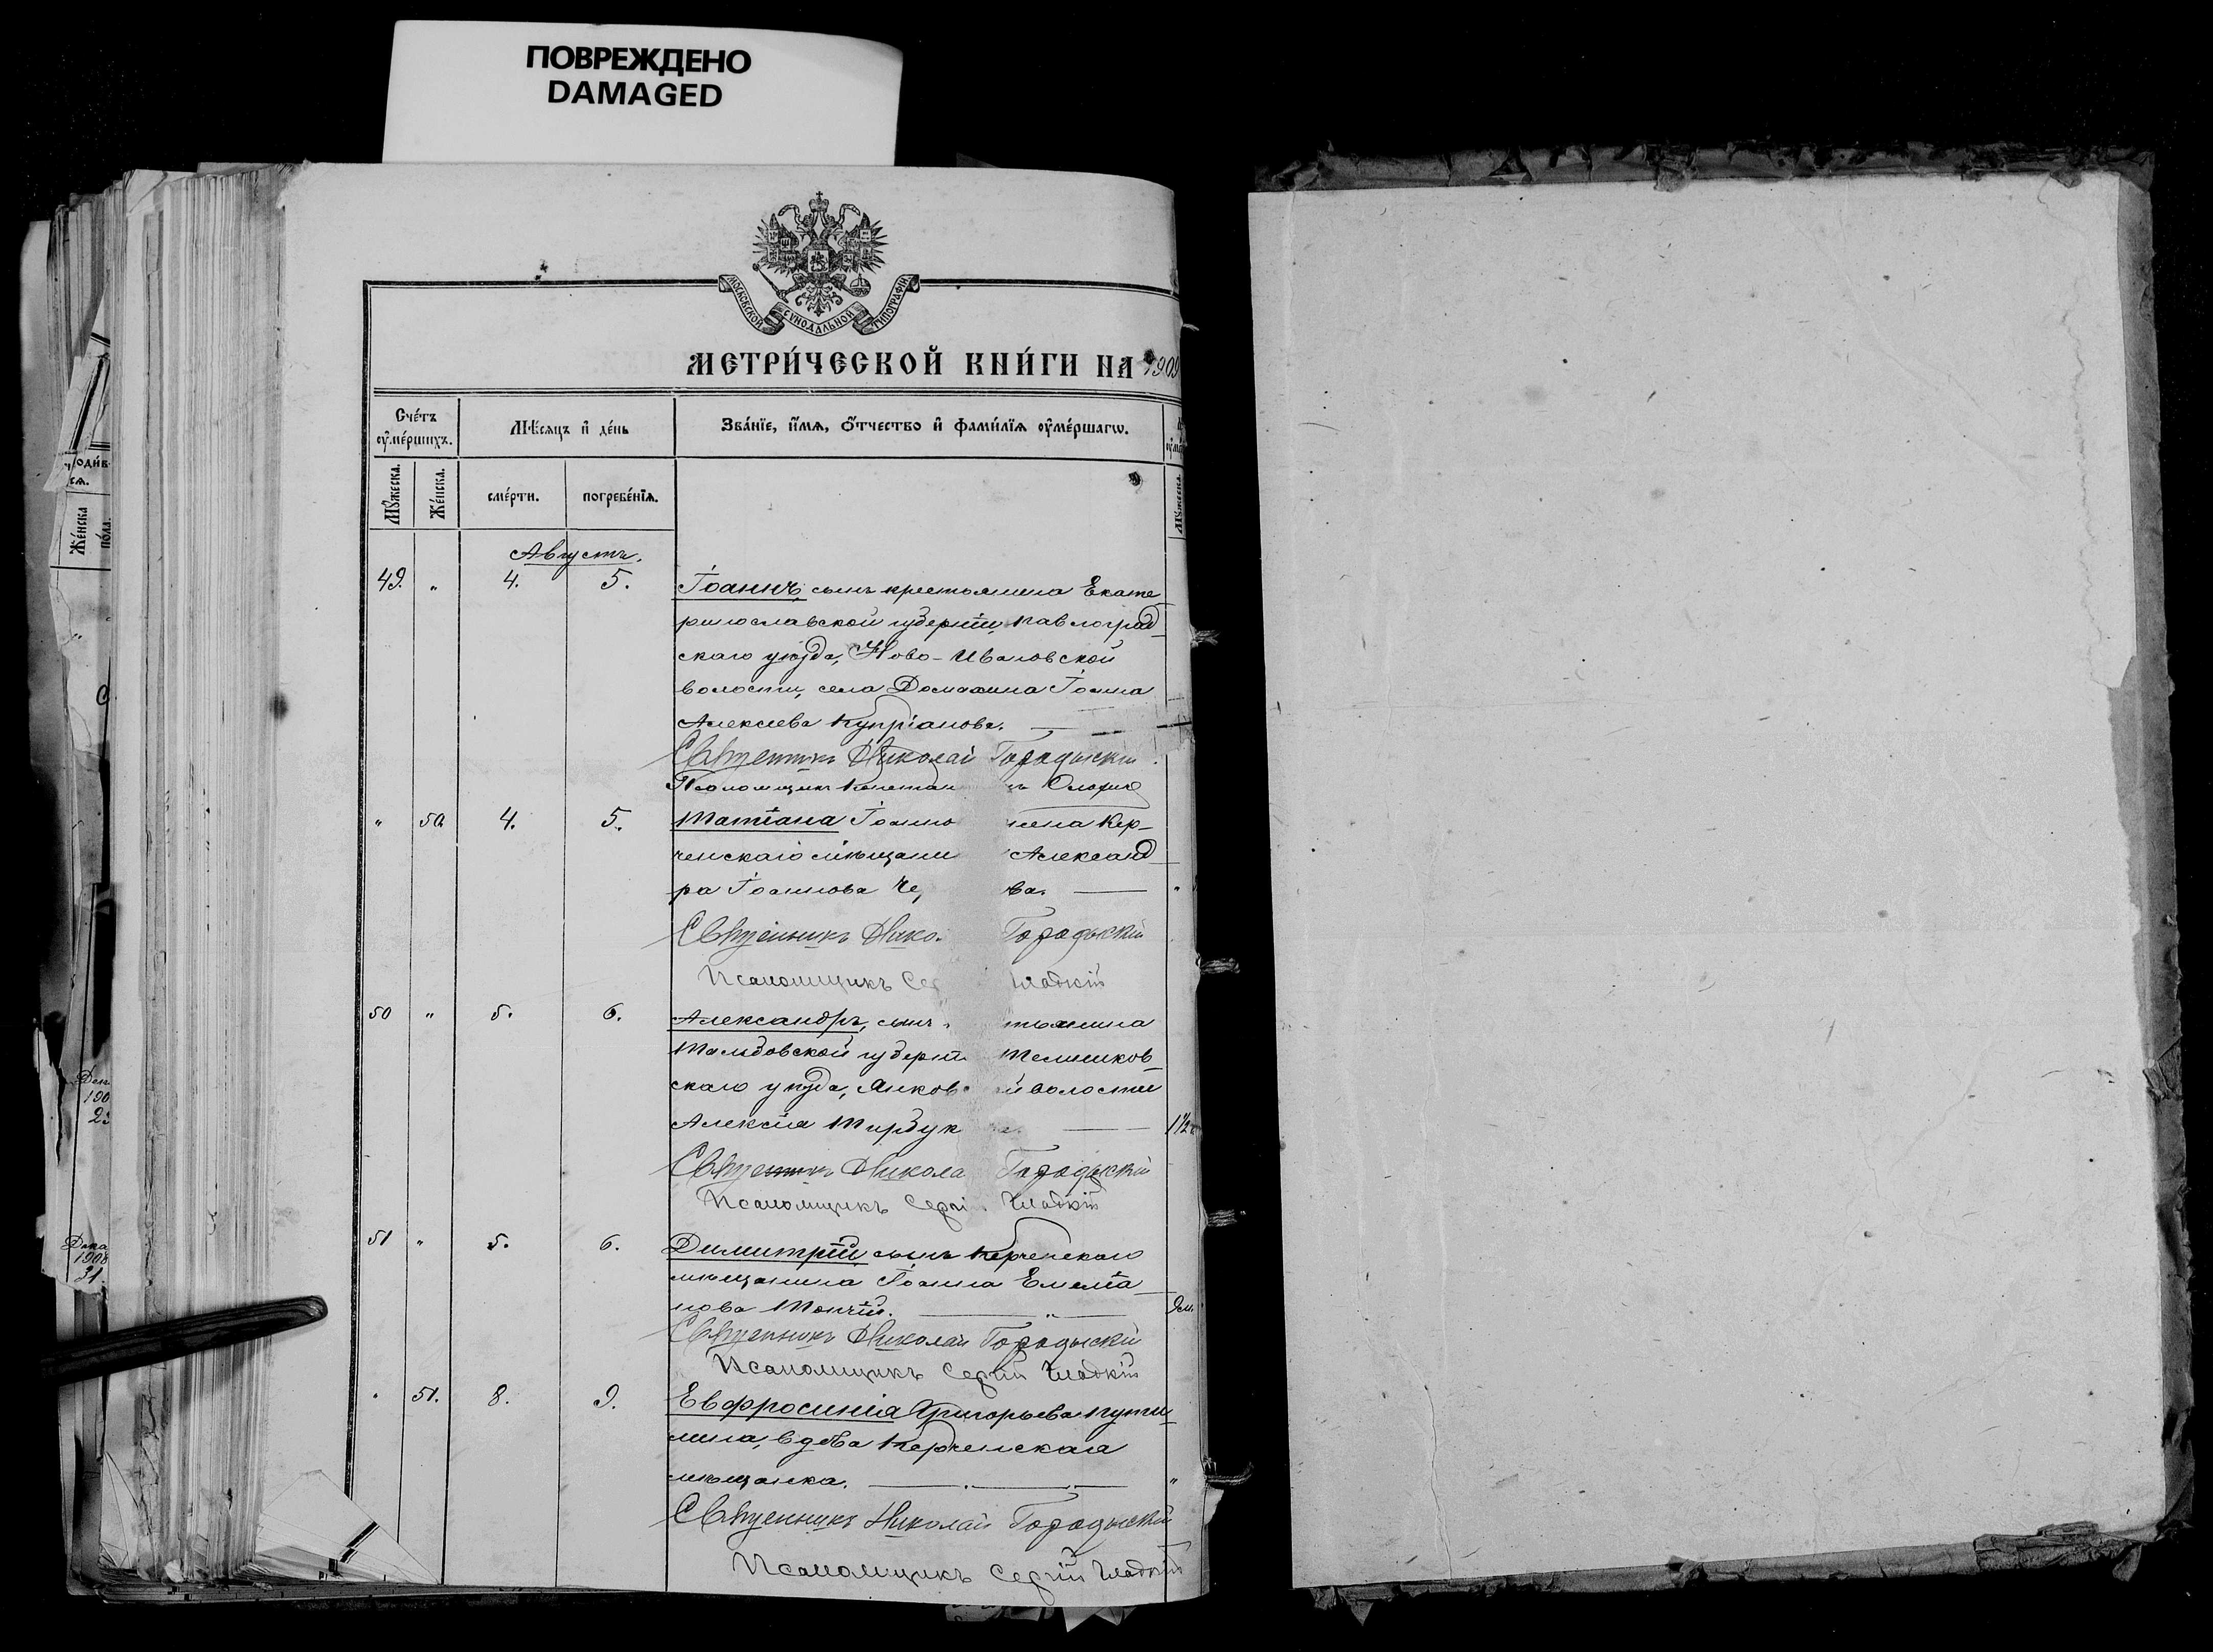 ПОВРЕЖДЕНО
DAMAGED
МОСКОВСКОЙ СѴНОДАЛЬНОЙ ТИПОГРАФІИ
МЕТРИ́ЧЕСКОЙ КНИ́ГИ НА 1909
Сче́тъ ᲂу҆ме́ршихъ.
Мѣ́сяцъ и҆ де́нь
Зва́нїе, и҆́мѧ, ѻ҆́тчество и҆ фами́лїѧ ᲂу҆ме́ршагѡ.
Мꙋ́жеска.
Же́нска.
сме́рти.
погребе́нїѧ.
Мꙋ́жеска
Августъ.
49. " 4. 5. Іоаннъ, сынъ крестьянина Екате
ринославской губерніи, Павлоград
скаго уѣзда, Ново-Ивановской
волости, села Домахина Іоанна
Алексѣева Купріанова.
Священникъ Николай Городыскій
Псаломщикъ
" 50 4. 5. Татіана Іоанно жена Кер-
ченскаго мѣщани Александ
ра Іоаннова Че ва. "
Священникъ Нико Городыскій
Псаломщикъ Сер Гладкій
50 " 5. 6. Александръ, сынъ тьянина
Тамбовской губерн Темников
скаго уѣзда, Янков й волости
Алексія Тирбук 1½
Священникъ Никола Городыскій
Псаломщикъ Сергі Гладкій
51 " 5. 6. Димитрій, сынъ Керченскаго
мѣщанина Іоанна Емеліа
нова Тончій. " 9м.
Священникъ Николай Городыскій
Псаломщикъ Сергій Гладкій
" 51. 8. 9. Евфросинія Григорьева Пути
лина, вдова Керченская
мѣщанка. "
Священникъ Николай Городыскій
Псаломщикъ Сергій Гладкій
Же́нска
по́ла.
190
Дека
1908
31.